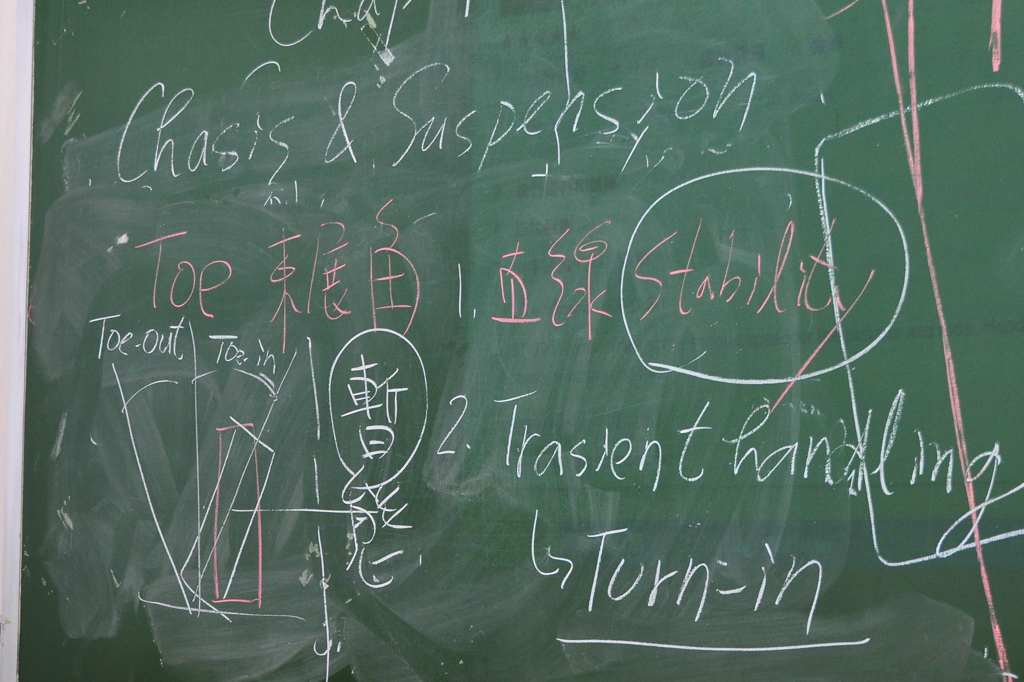 Chap
Chasis & Suspension
Toe 束展角 1. 直線 Stability
Toe-out Toe-in
暫態
2. Trasient handling
↳ Turn-in